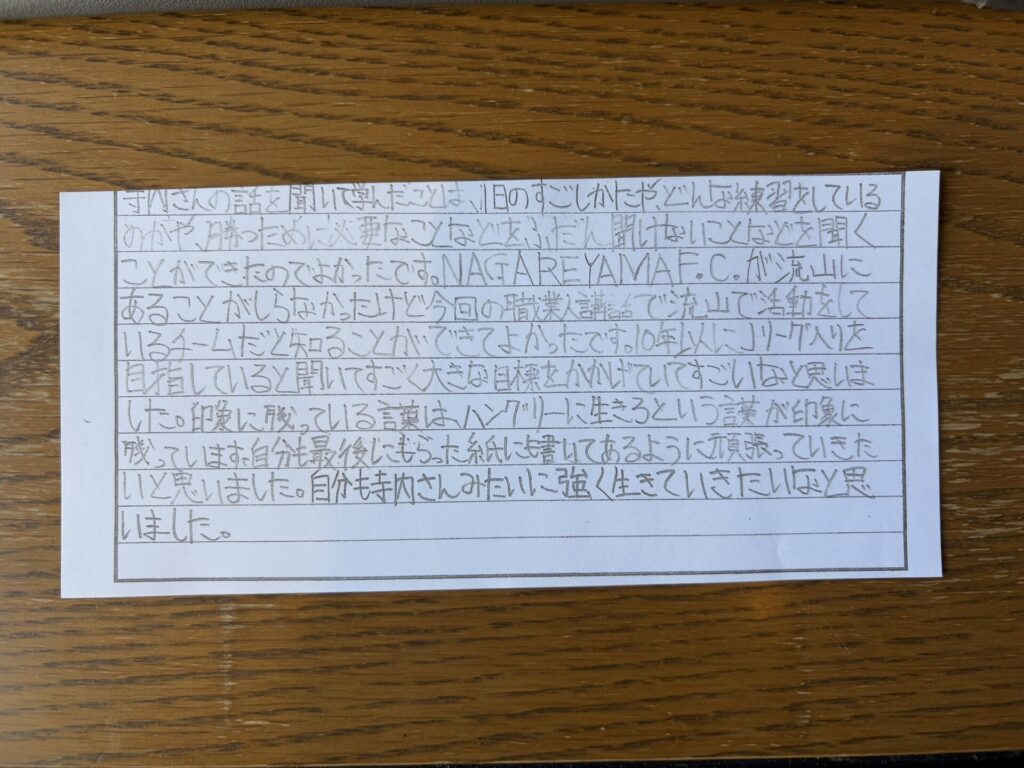 寺内さんの話を聞いて学んだことは、1日のすごしかたや、どんな練習をしている
のかや、勝つために必要なことなどをふだん聞けないことなどを聞く
ことができたのでよかったです。NAGAREYAMA F.C.が流山に
あることがしらなかったけど今回の職業人講話で流山で活動をして
いるチームだと知ることができてよかったです。10年以内にJリーグ入りを
目指していると聞いてすごく大きな目標をかかげていてすごいなと思いま
した。印象に残っている言葉は、ハングリーに生きろという言葉が印象に
残っています。自分も最後にもらった紙に書いてあるように頑張っていきた
いと思いました。自分も寺内さんみたいに強く生きていきたいなと思
いました。